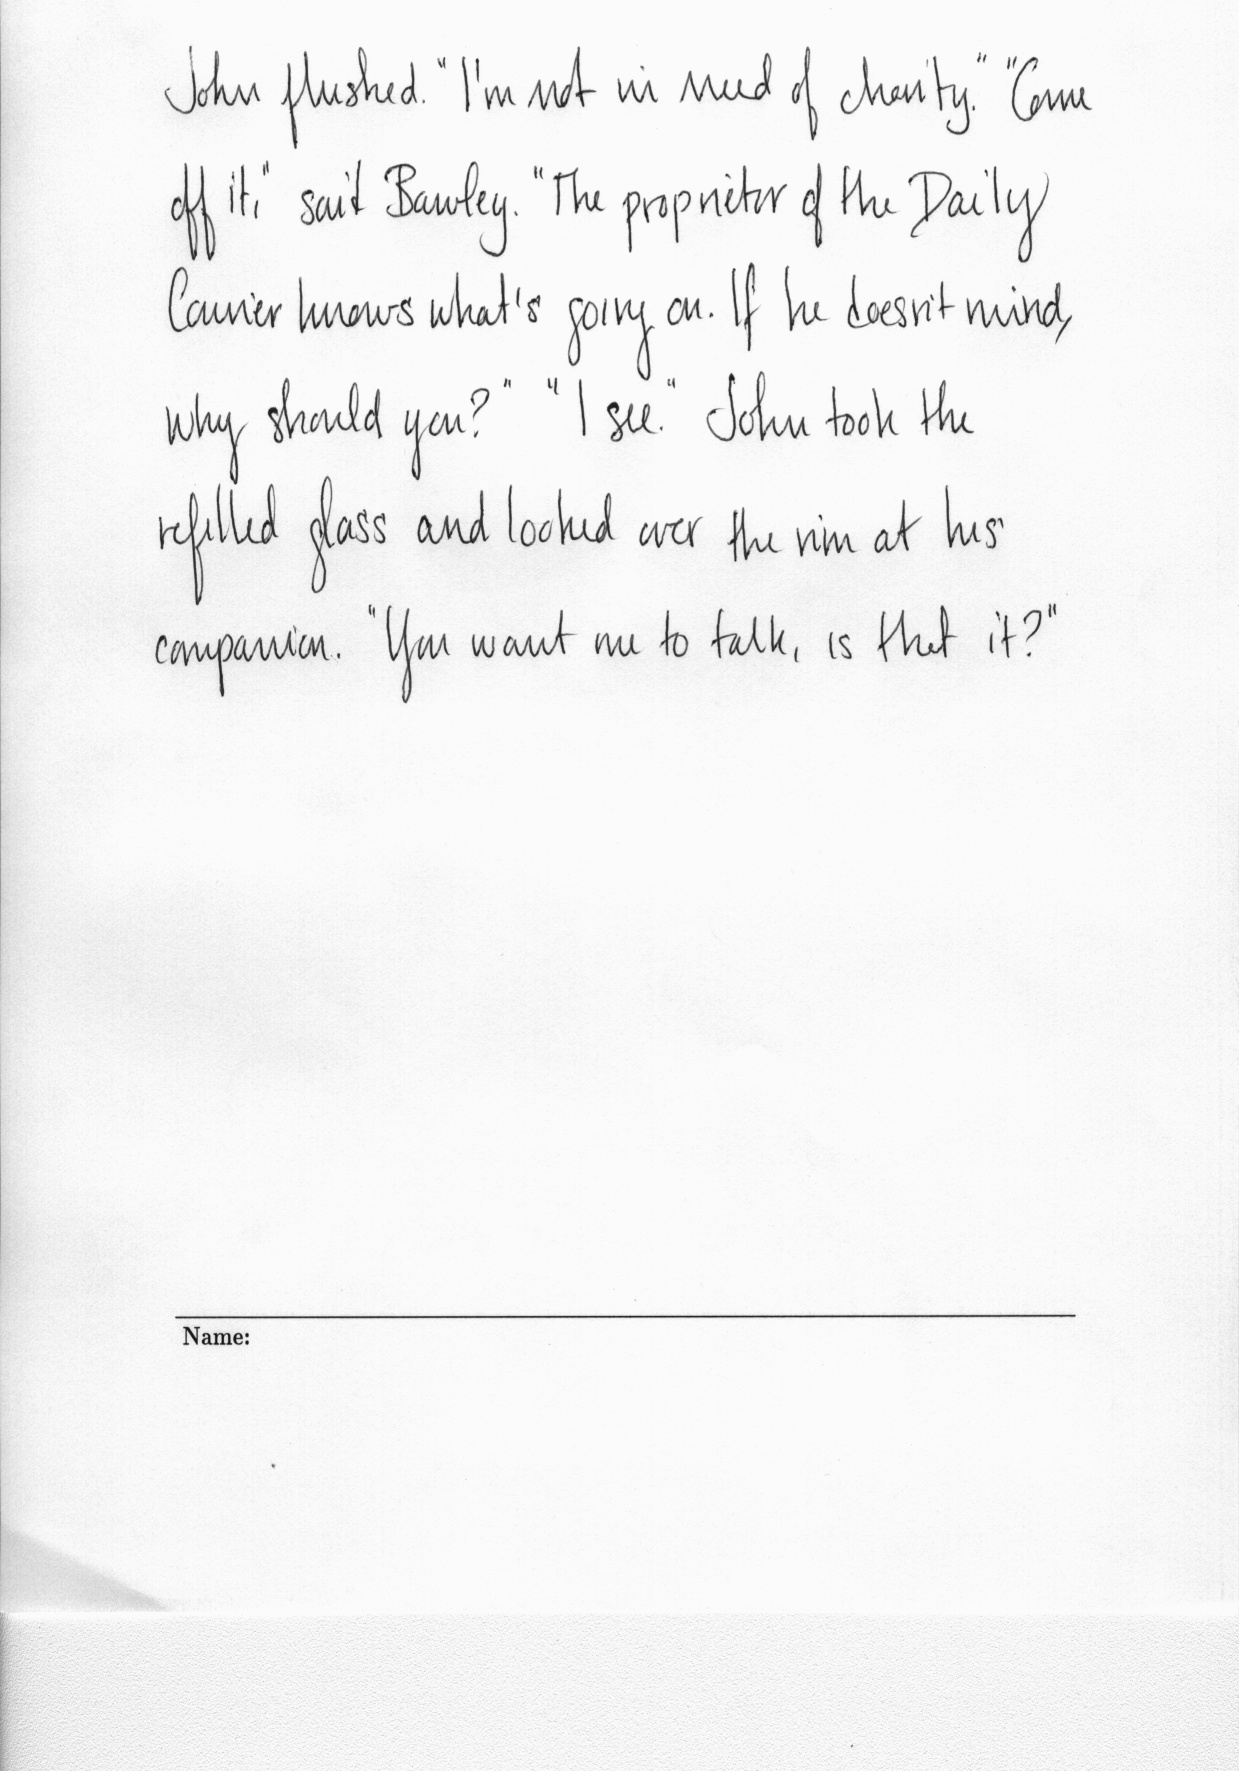 John flushed. "I'm not in need of charity." "Come
off it," said Bawley. "The proprietor of the Daily
Courier knows what's going on. If he doesn't mind,
why should you?" "I see." John took the
refilled glass and looked over the rim at his
companion. "You want me to talk, is that it?"
Name: